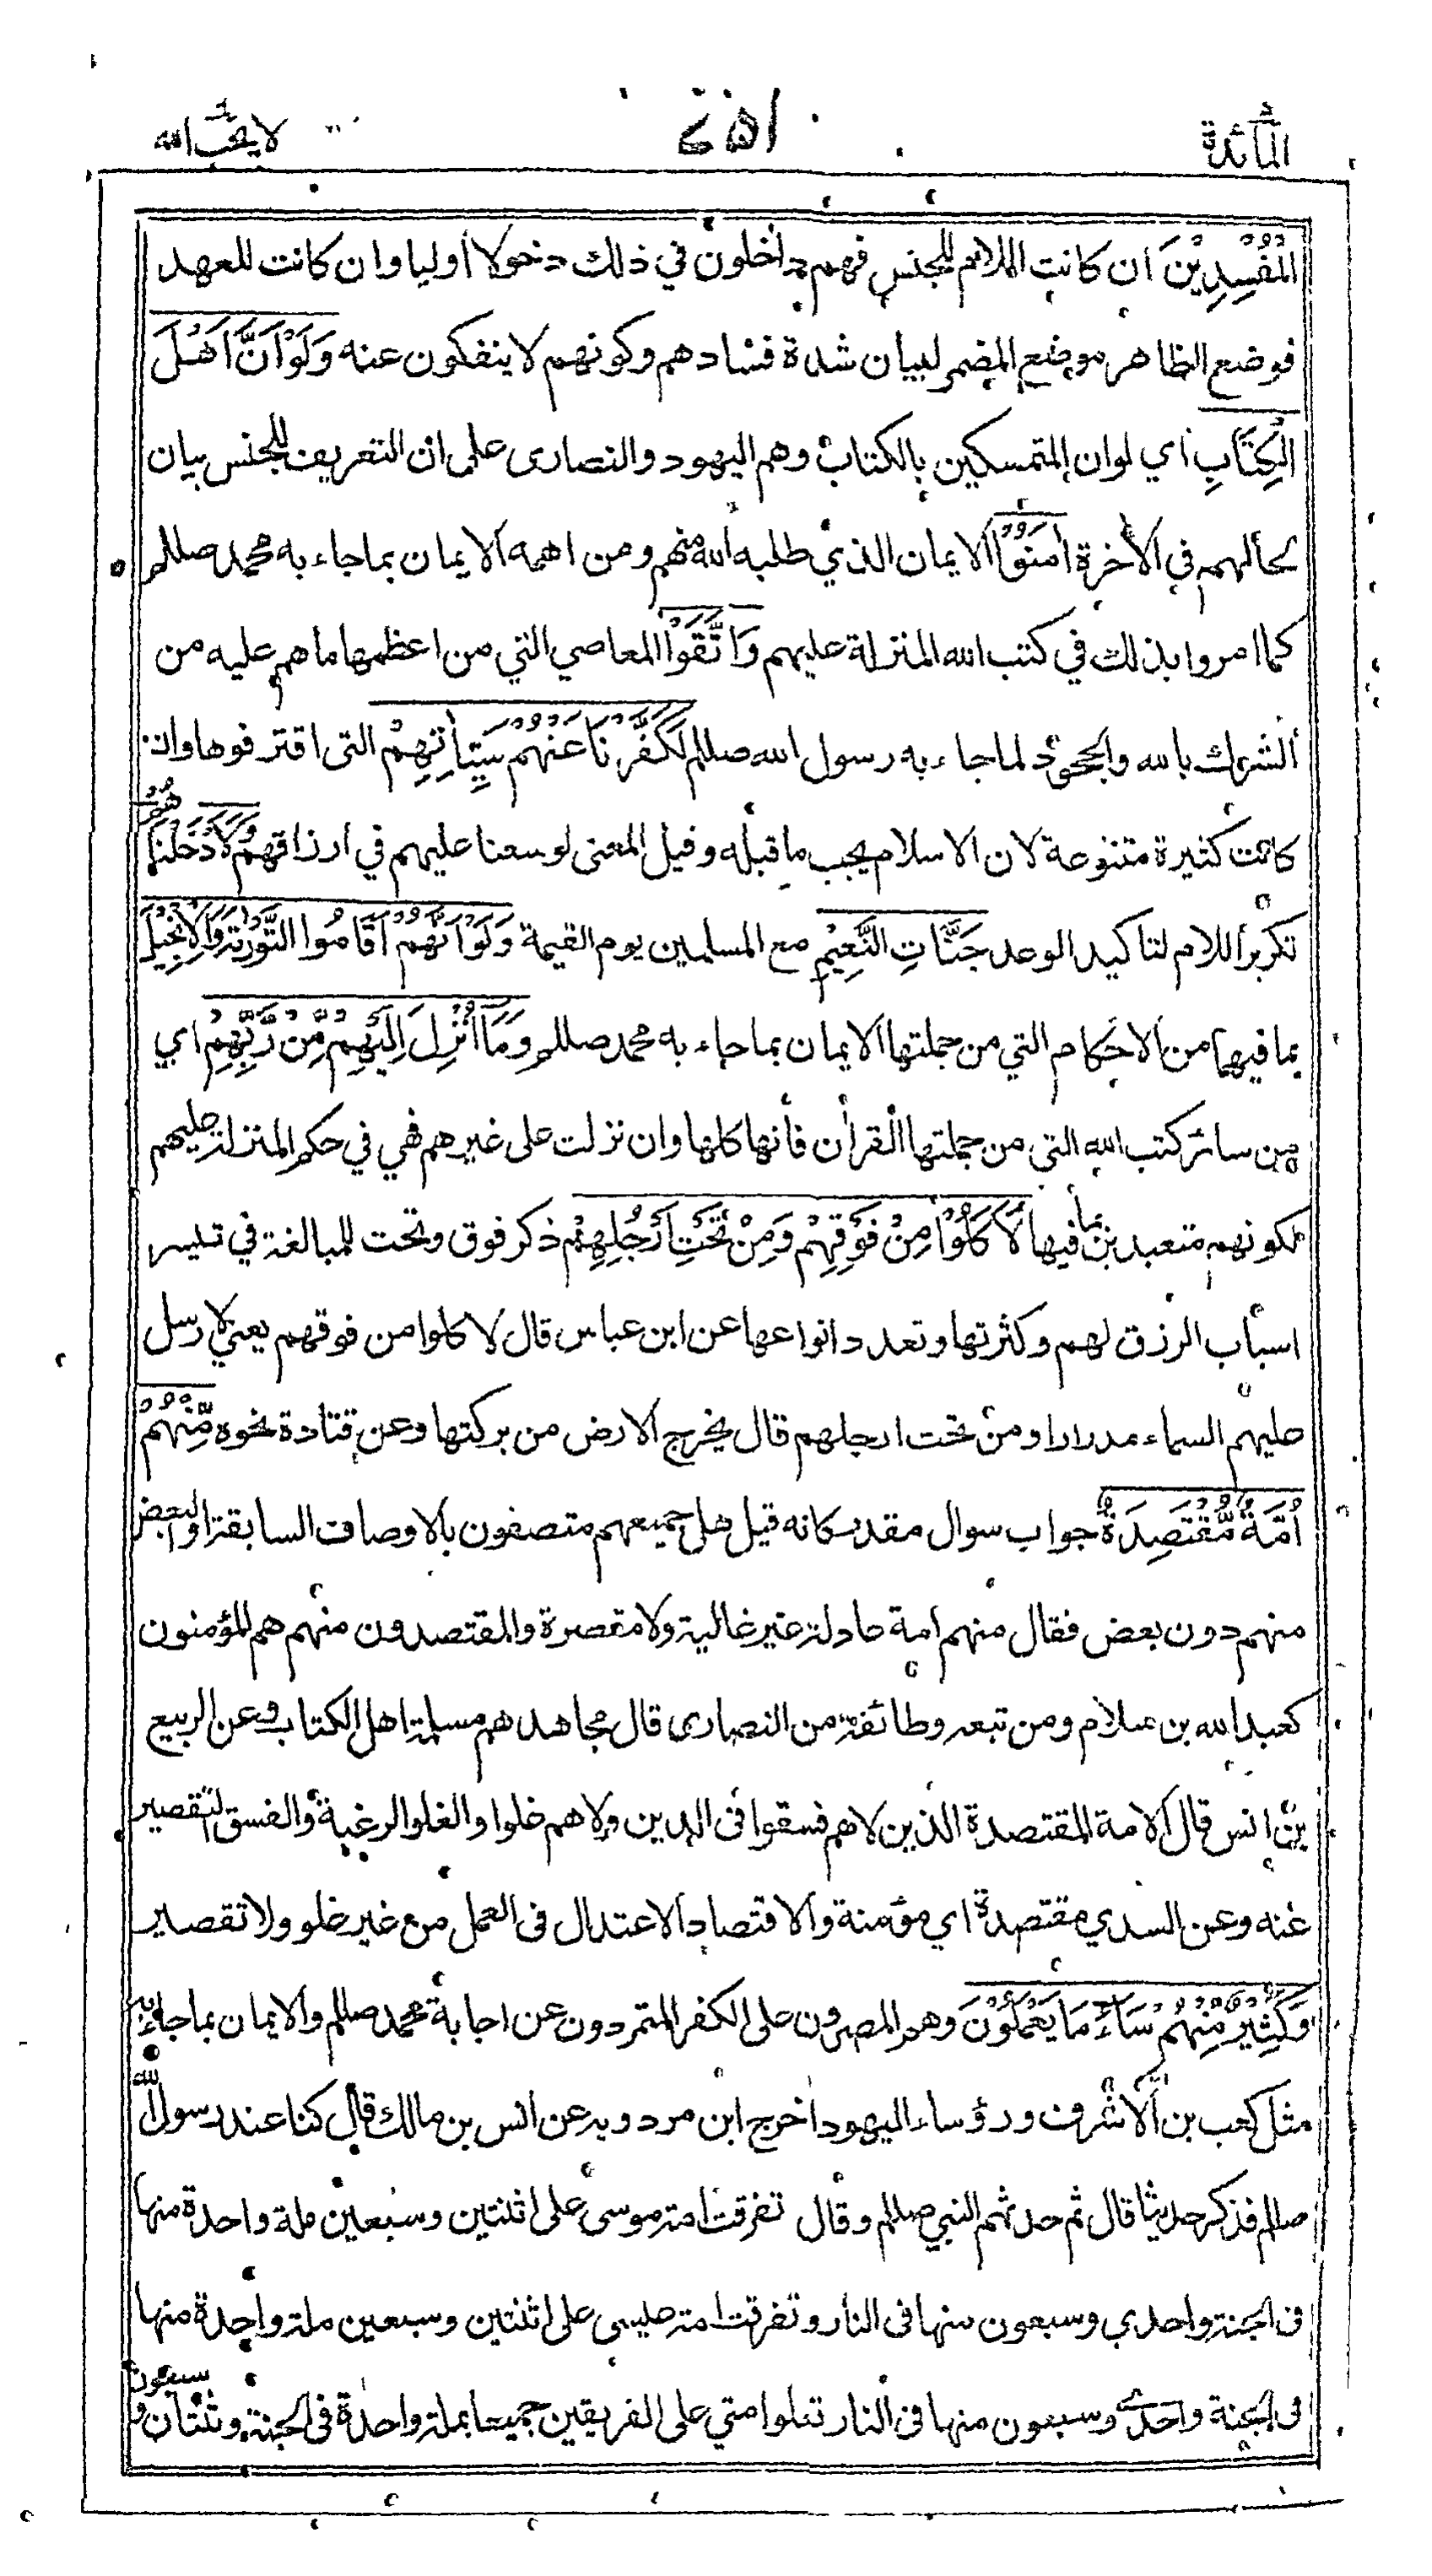 المائدة ٤٥١ لا يحب الله
الْمُفْسِدِيْنَ ان كانت اللام للجنس فهم داخلون في ذلك دخولا أوليا وان كانت للعهد
فوضع الظاهر موضع المضمر لبيان شدة فسادهم وكونهم لا ينفكون عنه وَلَوْ اَنَّ اَهْلَ
الْكِتَابِ أي لو ان المتمسكين بالكتاب وهم اليهود والنصارى على ان التعريف للجنس بيان
لحالهم في الأخرة اٰمَنُوْا الايمان الذي طلبه الله منهم ومن اهمه الايمان بما جاء به محمد صللم
كما امروا بذلك في كتب الله المنزلة عليهم وَاتَّقَوْا المعاصي التي من اعظمها ما هم عليه من
الشرك بالله والجحود لما جاء به رسول الله صللم لَكَفَّرْنَا عَنْهُمْ سَيِّاٰتِهِمْ التى اقترفوها وان
كانت كثيرة متنوعة لان الاسلام يجب ما قبله وقيل المعنى لوسعنا عليهم في ارزاقهم وَلَاَدْخَلْنٰهُمْ
تكرير اللام لتاكيد الوعد جَنّٰاتِ النَّعِيْمِ مع المسلمين يوم القيمة وَلَوْ اَنَّهُمْ اَقَامُوا التَّوْرٰىةَ وَالْاِنْجِيْلَ
بما فيهما من الاحكام التي من جملتها الايمان بما جاء به محمد صللم وَمَا اُنْزِلَ اِلَيْهِمْ مِّنْ رَّبِّهِمْ اي
من سائر كتب الله التي من جملتها القرأن فأنها كلها وان نزلت على غيرهم فهي في حكم المنزلة عليهم
لكونهم متعبدين بما فيها لَاَكَلُوْا مِنْ فَوْقِهِمْ وَمِنْ تَحْتِ اَرْجُلِهِمْ ذكر فوق وتحت للمبالغة في تيسير
اسباب الرزق لهم وكثرتها وتعدد انواعها عن ابن عباس قال لاكلوا من فوقهم يعني لارسل
عليهم السماء مدرارا ومن تحت ارجلهم قال يخرج الارض من بركتها وعن قتادة نحوه مِنْهُمْ
اُمَّةٌ مُّقْتَصِدَةٌ جواب سوال مقدر كانه قيل هل جميعهم متصفون بالاوصاف السابقة او البعض
منهم دون بعض فقال منهم امة عادلة غير غالية ولا مقصرة والمقتصدون منهم هم المؤمنون
كعبد الله بن سلام ومن تبعه وطائفة من النصارى قال مجاهد هم مسلمة اهل الكتاب وعن الربيع
بن انس قال الامة المقتصدة الذين لا هم فسقوا فى الدين ولا هم غلوا والغلو الرغبة والفسق التقصير
عنه وعن السدي مقتصدة اي مؤمنة والاقتصاد الاعتدال فى العمل من غير غلو ولا تقصير
وَكَثِيْرٌ مِّنْهُمْ سَاءَ مَا يَعْمَلُوْنَ وهم المصرون على الكفر المتمردون عن اجابة محمد صللم والايمان بما جاء به
مثل كعب بن الاشرف ورؤساء اليهود اخرج ابن مردويه عن انس بن مالك قال كنا عند رسول الله
صللم فذكر حديثا قال ثم حدثهم النبي صللم وقال تفرقت امة موسى على اثنتين وسبعين ملة واحدة منها
فى الجنة واحدي وسبعون منها فى النار وتفرقت امة عيسى على اثنتين وسبعين ملة واحدة منها
فى الجنة واحدى وسبعون منها فى النار تعلوا متي على الفريقين جميعا بملة واحدة فى الجنة وثنتان وسبعون